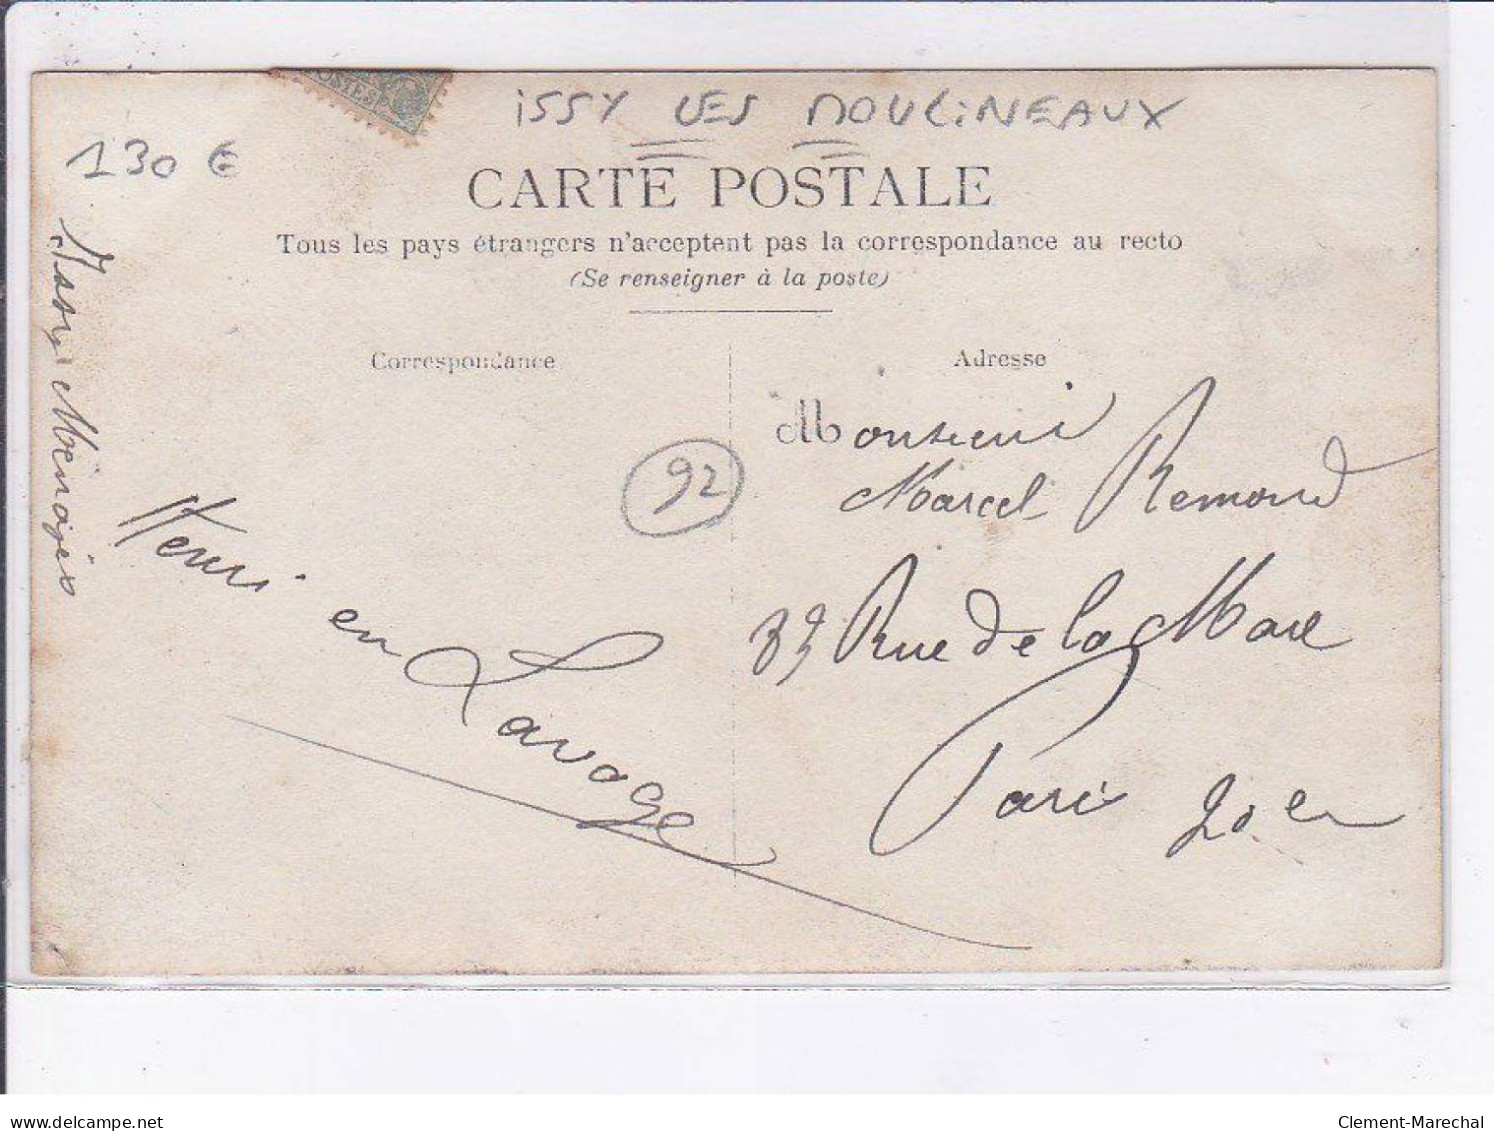 POSTES
ISSY LES MOULINEAUX
130 €
CARTE POSTALE
Tous les pays étrangers n'acceptent pas la correspondance au recto
(Se renseigner à la poste)
Correspondance
Adresse
92
Henri en Lavage
Monsieur
Marcel Remond
39 Rue de la Mare
Paris 20 e
delcampe.net
Clement-Marechal